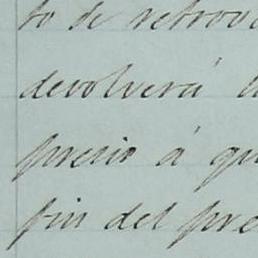 to de retrov
devolverá
presio á qu
fin del pre